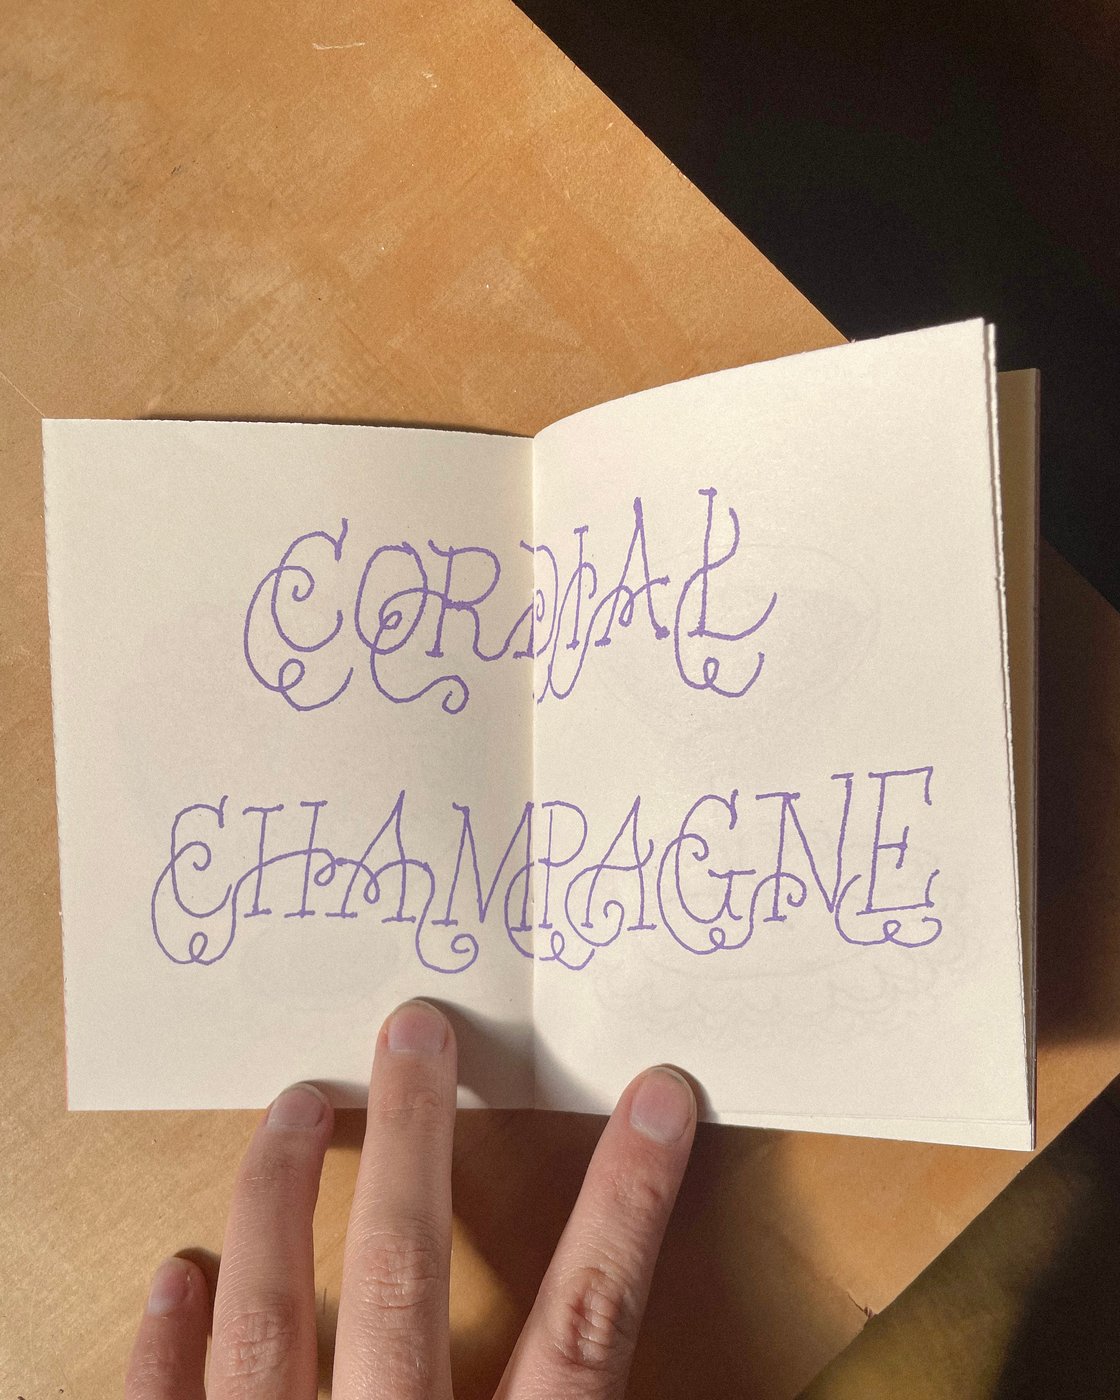 CORDIAL
CHAMPAGNE